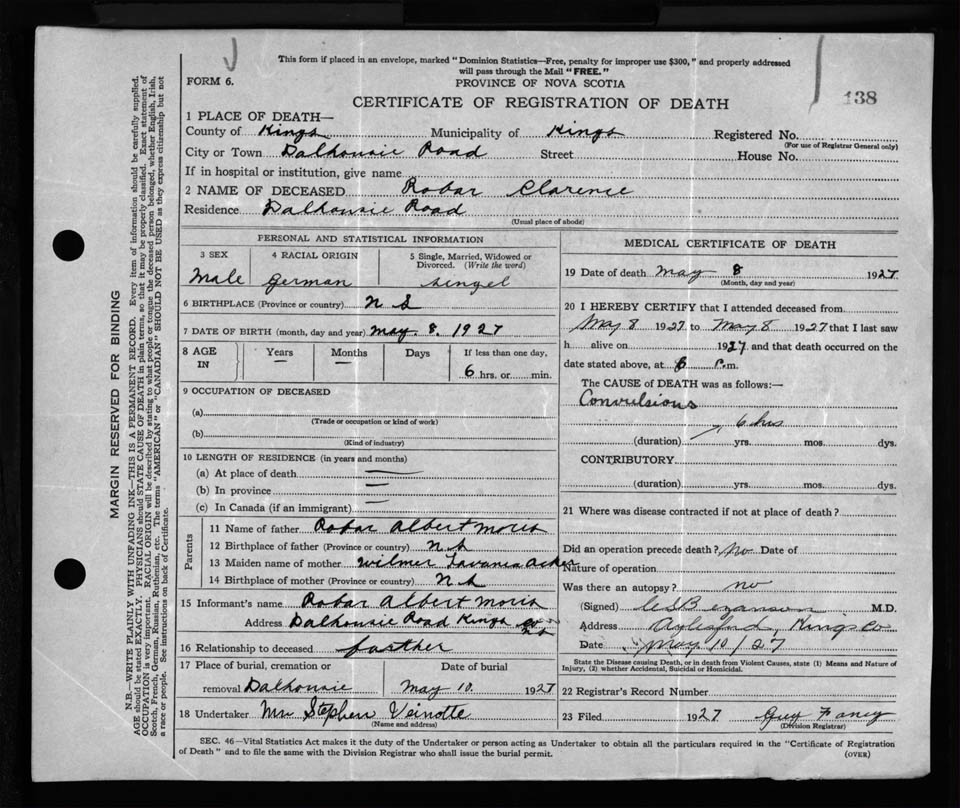 This form if placed in an envelope, marked "Dominion Statistics—Free, penalty for improper use $300," and properly addressed
will pass through the Mail "FREE."
FORM 6.
PROVINCE OF NOVA SCOTIA
138
CERTIFICATE OF REGISTRATION OF DEATH
1 PLACE OF DEATH—
County of Kings Municipality of Kings Registered No.
(For use of Registrar General only)
City or Town Dalhousie Road Street House No.
If in hospital or institution, give name
2 NAME OF DECEASED Robar Clarence
Residence Dalhousie Road
(Usual place of abode)
PERSONAL AND STATISTICAL INFORMATION
3 SEX 4 RACIAL ORIGIN 5 Single, Married, Widowed or
Divorced. (Write the word)
Male German singel
6 BIRTHPLACE (Province or country) N S
7 DATE OF BIRTH (month, day and year) May. 8. 1927
8 AGE IN Years Months Days If less than one day,
— — 6 hrs. or min.
9 OCCUPATION OF DECEASED
(a)
(Trade or occupation or kind of work)
(b)
(Kind of industry)
10 LENGTH OF RESIDENCE (in years and months)
(a) At place of death —
(b) In province —
(c) In Canada (if an immigrant) —
Parents
11 Name of father Robar Albert Moris
12 Birthplace of father (Province or country) N S
13 Maiden name of mother Wilmer Lavania
14 Birthplace of mother (Province or country) N S
15 Informant's name Robar Albert Moris
Address Dalhousie Road Kings Co N S
16 Relationship to deceased faither
17 Place of burial, cremation or Date of burial
removal Dalhousie May 10. 1927
18 Undertaker Mr Stephen Veinotte
(Name and address)
MEDICAL CERTIFICATE OF DEATH
19 Date of death May 8 1927
(Month, day and year)
20 I HEREBY CERTIFY that I attended deceased from
May 8 1927 to May 8 1927 that I last saw
h alive on 1927 and that death occurred on the
date stated above, at 6 P.m.
The CAUSE of DEATH was as follows:—
Convulsions
6 hrs
(duration) yrs. mos. dys.
CONTRIBUTORY
(duration) yrs. mos. dys.
21 Where was disease contracted if not at place of death?
Did an operation precede death? No Date of
Nature of operation
Was there an autopsy? no
(Signed) M.D.
Address Aylesford, Kings Co
Date May 10/27
State the Disease causing Death, or in death from Violent Causes, state (1) Means and Nature of
Injury, (2) whether Accidental, Suicidal or Homicidal.
22 Registrar's Record Number
23 Filed 1927 Guy
(Division Registrar)
SEC. 46—Vital Statistics Act makes it the duty of the Undertaker or person acting as Undertaker to obtain all the particulars required in the "Certificate of Registration
of Death" and to file the same with the Division Registrar who shall issue the burial permit.
(OVER)
MARGIN RESERVED FOR BINDING
N.B.—WRITE PLAINLY WITH UNFADING INK—THIS IS A PERMANENT RECORD. Every item of information should be carefully supplied.
AGE should be stated EXACTLY. PHYSICIANS should STATE CAUSE OF DEATH in plain terms, so that it may be properly classified. Exact statement of
OCCUPATION is very important. RACIAL ORIGIN will be described by stating to what people or tongue the deceased person belonged, whether English, Irish,
Scotch, French, German, Russian, Ruthenian, etc. The terms "AMERICAN" or "CANADIAN" SHOULD NOT BE USED as they express citizenship but not
a race or people. See instructions on back of Certificate.